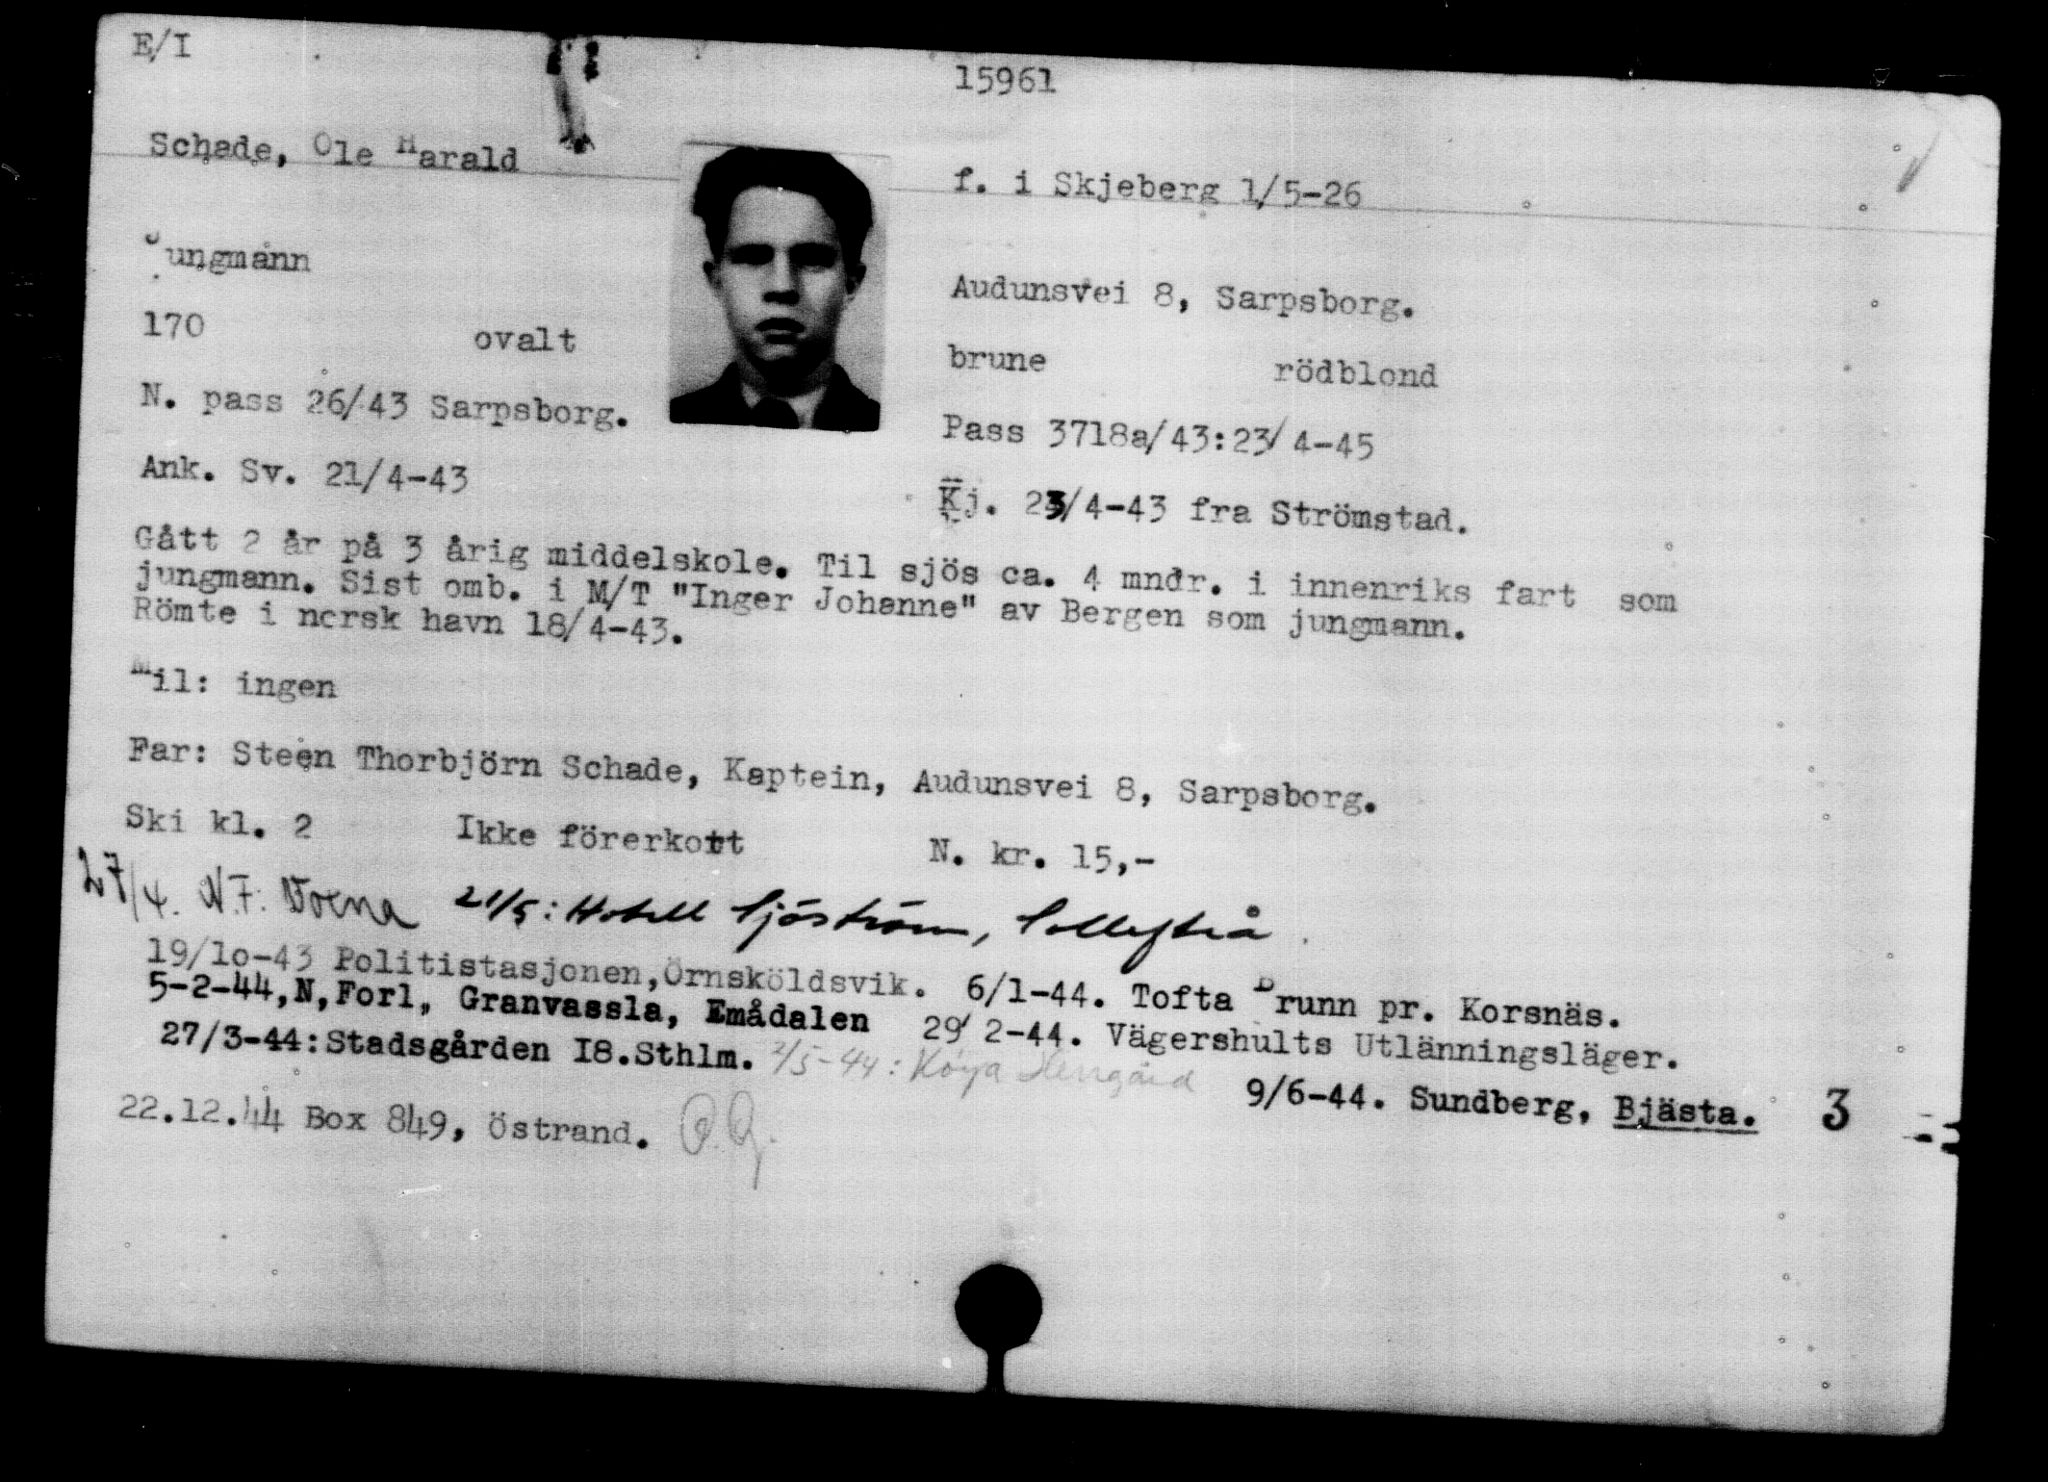 E/I
15961
Schade, Ole Harald
f. i Skjeberg 1/5-26
Jungmann
Audunsvei 8, Sarpsborg.
170 ovalt
brune rödblond
N. pass 26/43 Sarpsborg.
Pass 3718a/43:23/4-45
Ank. Sv. 21/4-43
Kj. 23/4-43 fra Strömstad.
Gått 2 år på 3 årig middelskole. Til sjös ca. 4 mndr. i innenriks fart som
jungmann. Sist omb. i M/T "Inger Johanne" av Bergen som jungmann.
Römte i norsk havn 18/4-43.
Mil: ingen
Far: Steen Thorbjörn Schade, Kaptein, Audunsvei 8, Sarpsborg.
Ski kl. 2 Ikke förerkort N. kr. 15,-
27/4. N.F. 21/5: Hotell Sjöström, Sollefteå.
19/10-43 Politistasjonen, Örnsköldsvik. 6/1-44. Tofta Brunn pr. Korsnäs.
5-2-44, N, Forl, Granvassla, Emådalen 29/2-44. Vägershults Utlänningsläger.
27/3-44: Stadsgården 18. Sthlm. 2/5-44:
9/6-44. Sundberg, Bjästa. 3
22.12.44 Box 849, Östrand.